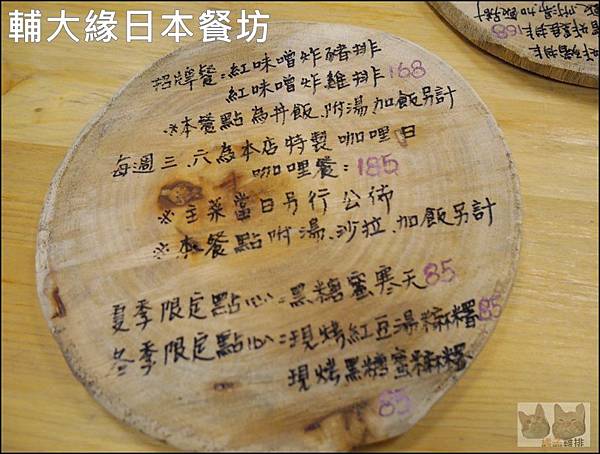 輔大緣日本餐坊
招牌餐:紅味噌炸豬排
紅味噌炸雞排 168
※本餐點為丼飯.附湯.加飯另計
每週三.六為本店特製咖哩日
咖哩餐:185
※主菜當日另行公佈
※本餐點附湯.沙拉.加飯另計
夏季限定點心:黑糖蜜寒天85
冬季限定點心:現烤紅豆湯麻糬85
現烤黑糖蜜麻糬
85